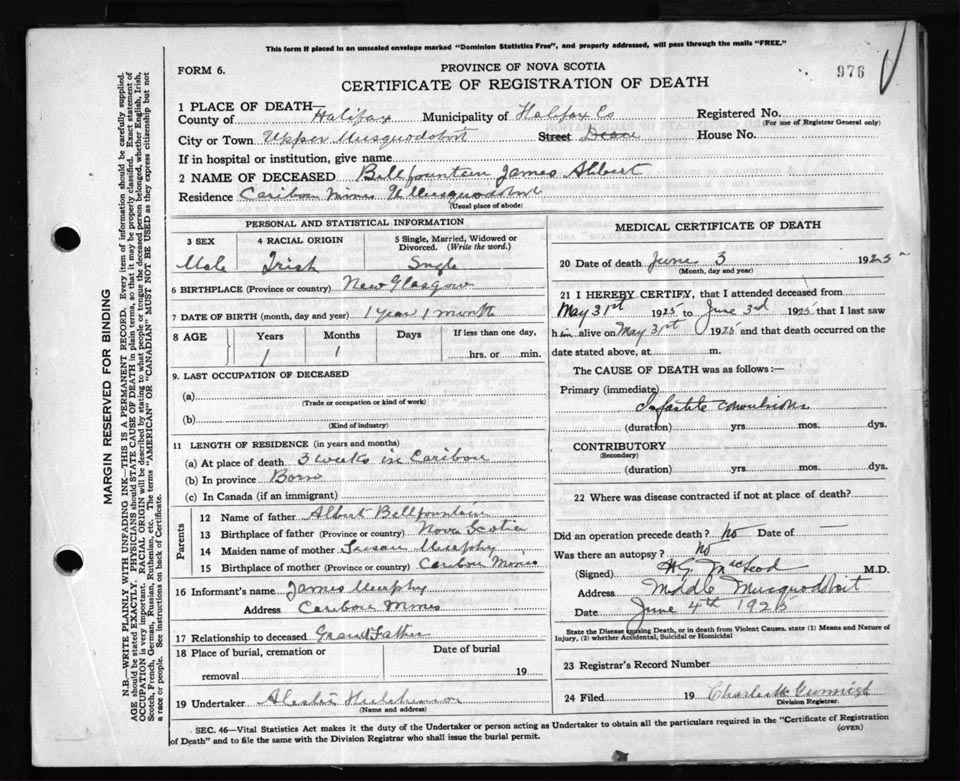 This form if placed in an unsealed envelope marked "Dominion Statistics Free", and properly addressed, will pass through the mails "FREE."
FORM 6.
PROVINCE OF NOVA SCOTIA
976
CERTIFICATE OF REGISTRATION OF DEATH
1 PLACE OF DEATH—
County of Halifax Municipality of Halifax Co Registered No.
(For use of Registrar General only)
City or Town Upper Musquodoboit Street Deane House No.
If in hospital or institution, give name
2 NAME OF DECEASED Bellfountain James Albert
Residence Caribou Mines U Musquodoboit
(Usual place of abode)
PERSONAL AND STATISTICAL INFORMATION
3 SEX 4 RACIAL ORIGIN 5 Single, Married, Widowed or Divorced. (Write the word.)
Male Irish Single
6 BIRTHPLACE (Province or country) New Glasgow
7 DATE OF BIRTH (month, day and year) 1 year 1 month
8 AGE Years Months Days If less than one day,
1 1 hrs. or min.
9. LAST OCCUPATION OF DECEASED
(a)
(Trade or occupation or kind of work)
(b)
(Kind of industry)
11 LENGTH OF RESIDENCE (in years and months)
(a) At place of death 3 weeks in Caribou
(b) In province Born
(c) In Canada (if an immigrant)
Parents
12 Name of father Albert Bellfountain
13 Birthplace of father (Province or country) Nova Scotia
14 Maiden name of mother Susan Murphy
15 Birthplace of mother (Province or country) Caribou Mines
16 Informant's name James Murphy
Address Caribou Mines
17 Relationship to deceased Grand Father
18 Place of burial, cremation or Date of burial
removal 19
19 Undertaker
(Name and address)
MEDICAL CERTIFICATE OF DEATH
20 Date of death June 3 1925
(Month, day and year)
21 I HEREBY CERTIFY, that I attended deceased from
May 31st 1925 to June 3rd 1925 that I last saw
him alive on May 31st 1925 and that death occurred on the
date stated above, at m.
The CAUSE OF DEATH was as follows:—
Primary (immediate)
Infantile convulsions
(duration) yrs. mos. dys.
CONTRIBUTORY
(Secondary)
(duration) yrs. mos. dys.
22 Where was disease contracted if not at place of death?
Did an operation precede death? No Date of —
Was there an autopsy? No
(Signed) H.G. MacLeod M.D.
Address Middle Musquodoboit
Date June 4th 1925
State the Disease causing Death, or in death from Violent Causes, state (1) Means and Nature of
Injury, (2) whether Accidental, Suicidal or Homicidal
23 Registrar's Record Number
24 Filed 19
Division Registrar.
SEC. 46—Vital Statistics Act makes it the duty of the Undertaker or person acting as Undertaker to obtain all the particulars required in the "Certificate of Registration
of Death" and to file the same with the Division Registrar who shall issue the burial permit.
(OVER)
MARGIN RESERVED FOR BINDING
N.B.—WRITE PLAINLY WITH UNFADING INK—THIS IS A PERMANENT RECORD. Every item of information should be carefully supplied.
AGE should be stated EXACTLY. PHYSICIANS should STATE CAUSE OF DEATH in plain terms, so that it may be properly classified. Exact statement of
OCCUPATION is very important. RACIAL ORIGIN will be described by stating to what people or tongue the deceased person belonged, whether English, Irish,
Scotch, French, German, Russian, Ruthenian, etc. The terms "AMERICAN" OR "CANADIAN" MUST NOT BE USED as they express citizenship but not
a race or people. See instructions on back of Certificate.